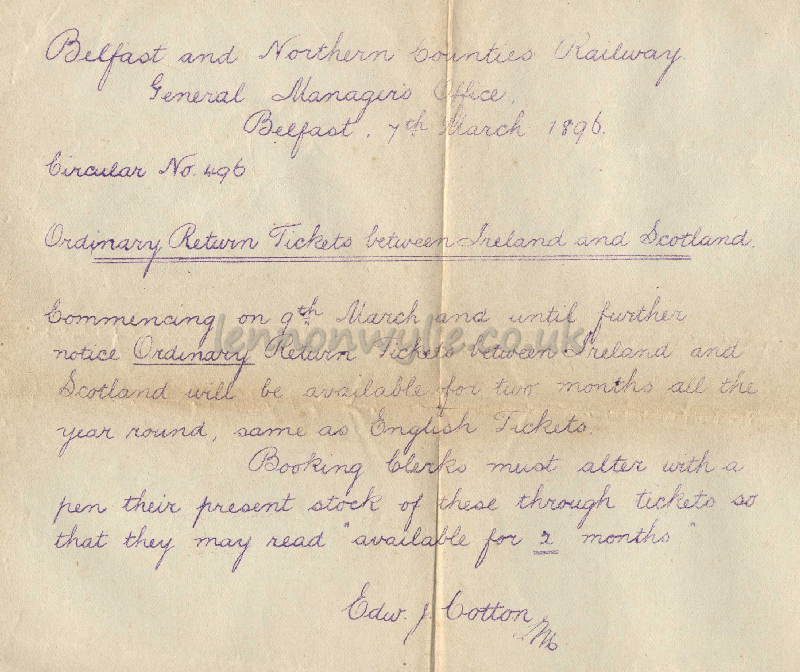 Belfast and Northern Counties Railway.
General Manager's Office,
Belfast, 7th March 1896.
Circular No. 496
Ordinary Return Tickets between Ireland and Scotland.
Commencing on 9th March and until further
lennonwylie.co.uk
notice Ordinary Return Tickets between Ireland and
Scotland will be available for two months all the
year round, same as English Tickets.
Booking Clerks must alter with a
pen their present stock of these through tickets so
that they may read "available for 2 months"
Edw. J. Cotton